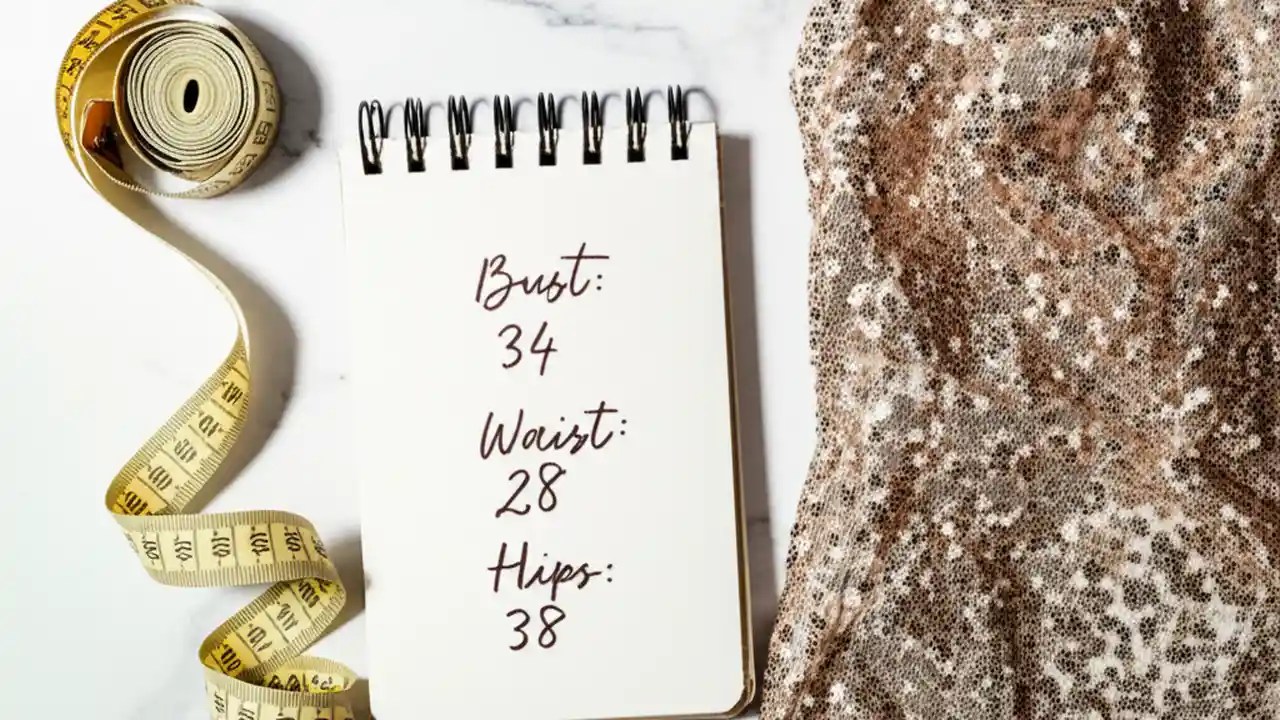 Bust:
34
Waist:
28
Hips:
38